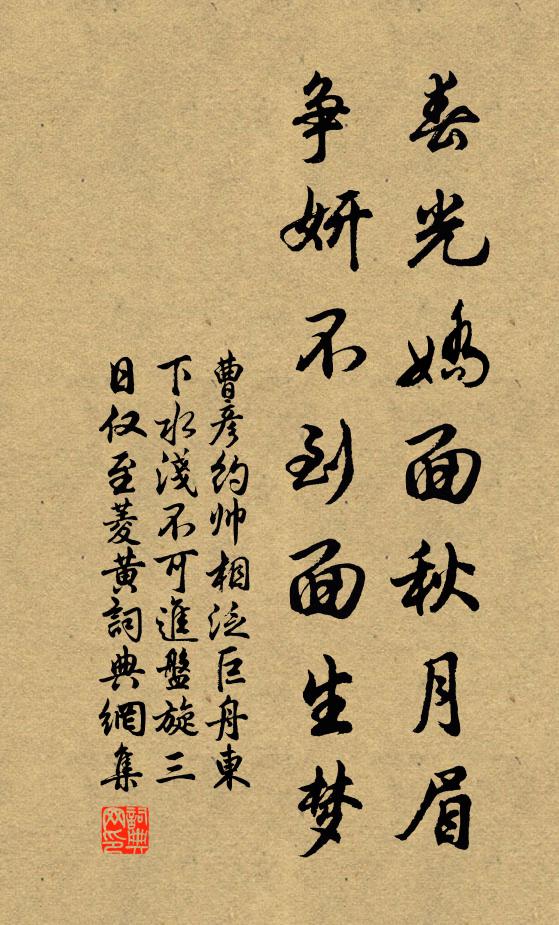 春光嬌面秋月眉
争妍不到面生梦
曹彦约帅相泛巨舟東
下水淺不可進盤旋三
日仅至菱黄詞典網集
詞典网印